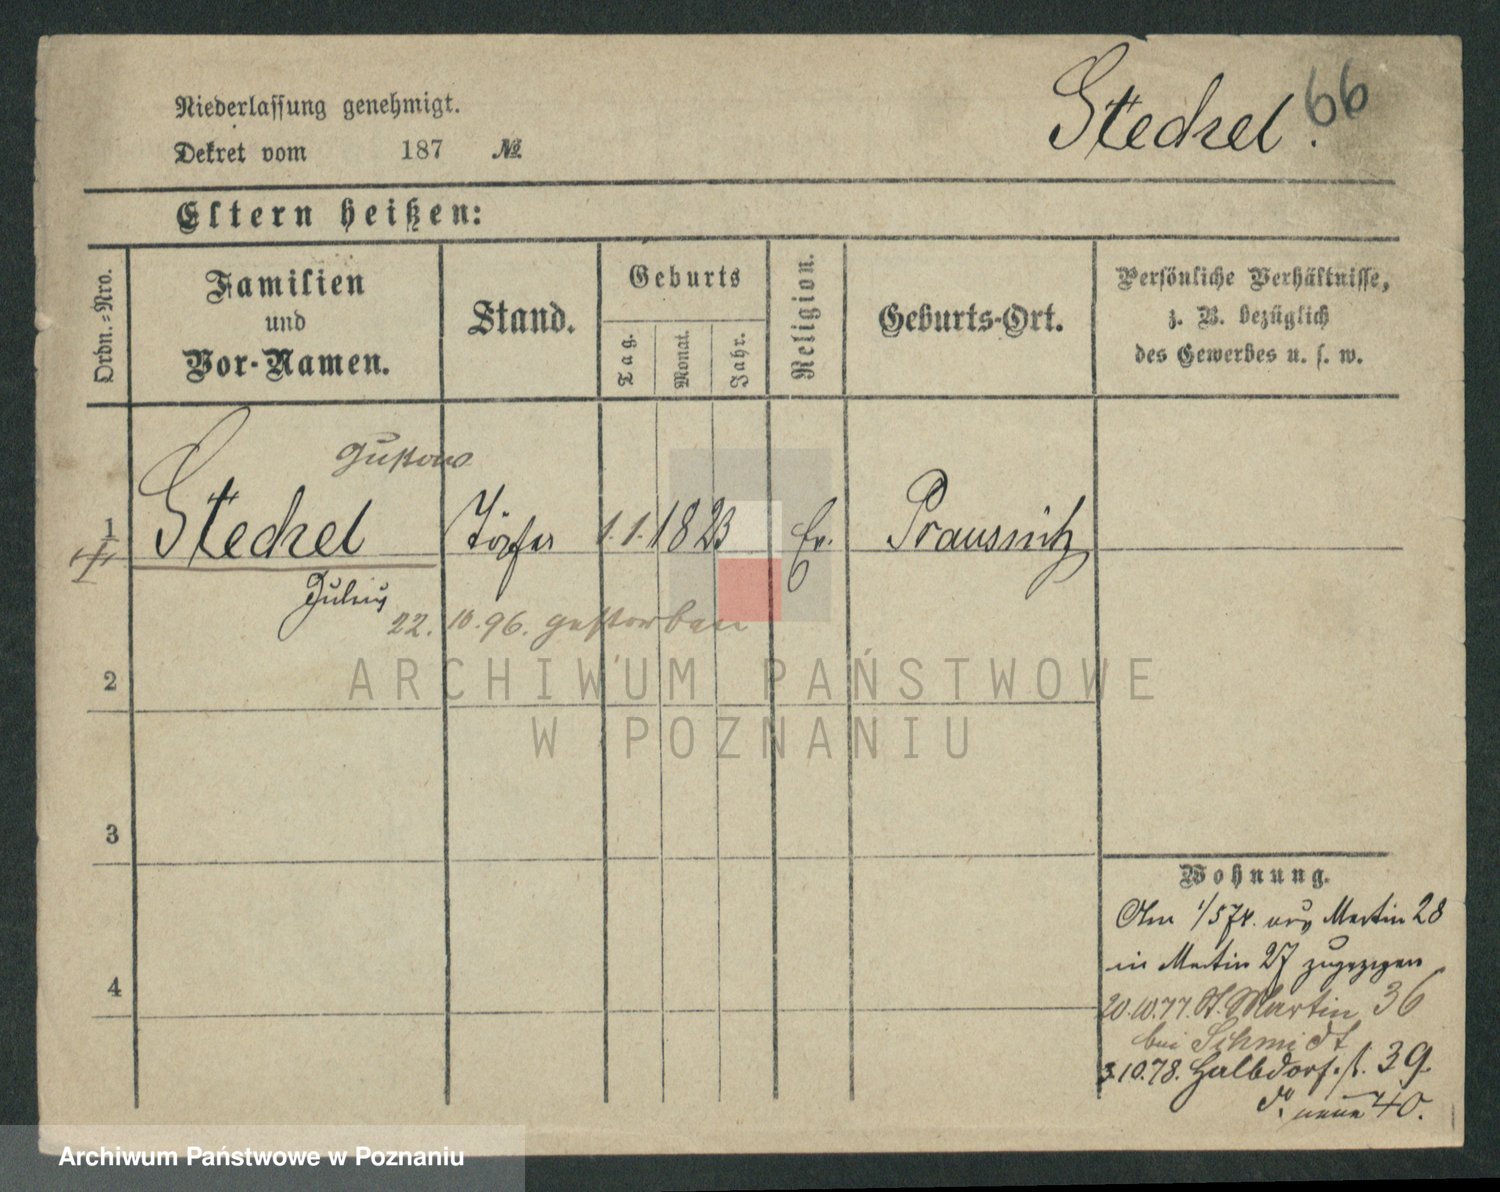 Niederlassung genehmigt.
Dekret vom 187 №
Steckel. 66
Eltern heißen:
Ordn.-Nro.
Familien
und
Vor-Namen.
Stand.
Geburts
Tag.
Monat.
Jahr.
Religion.
Geburts-Ort.
Persönliche Verhältnisse,
z. B. bezüglich
des Gewerbes u. s. w.
Gustav
1 Steckel Töpfer 1. 1. 1823 Ev. Prausnitz
Julius
22. 10. 96. gestorben
2
3
4
Wohnung.
Am 1/5 74. aus Martin 28
in Martin 27 zugezogen
20.10.77. St. Martin 36
bei Schmidt
3.10.78. Halbdorfst. 39.
do neue 40.
ARCHIWUM PAŃSTWOWE
W POZNANIU
Archiwum Państwowe w Poznaniu